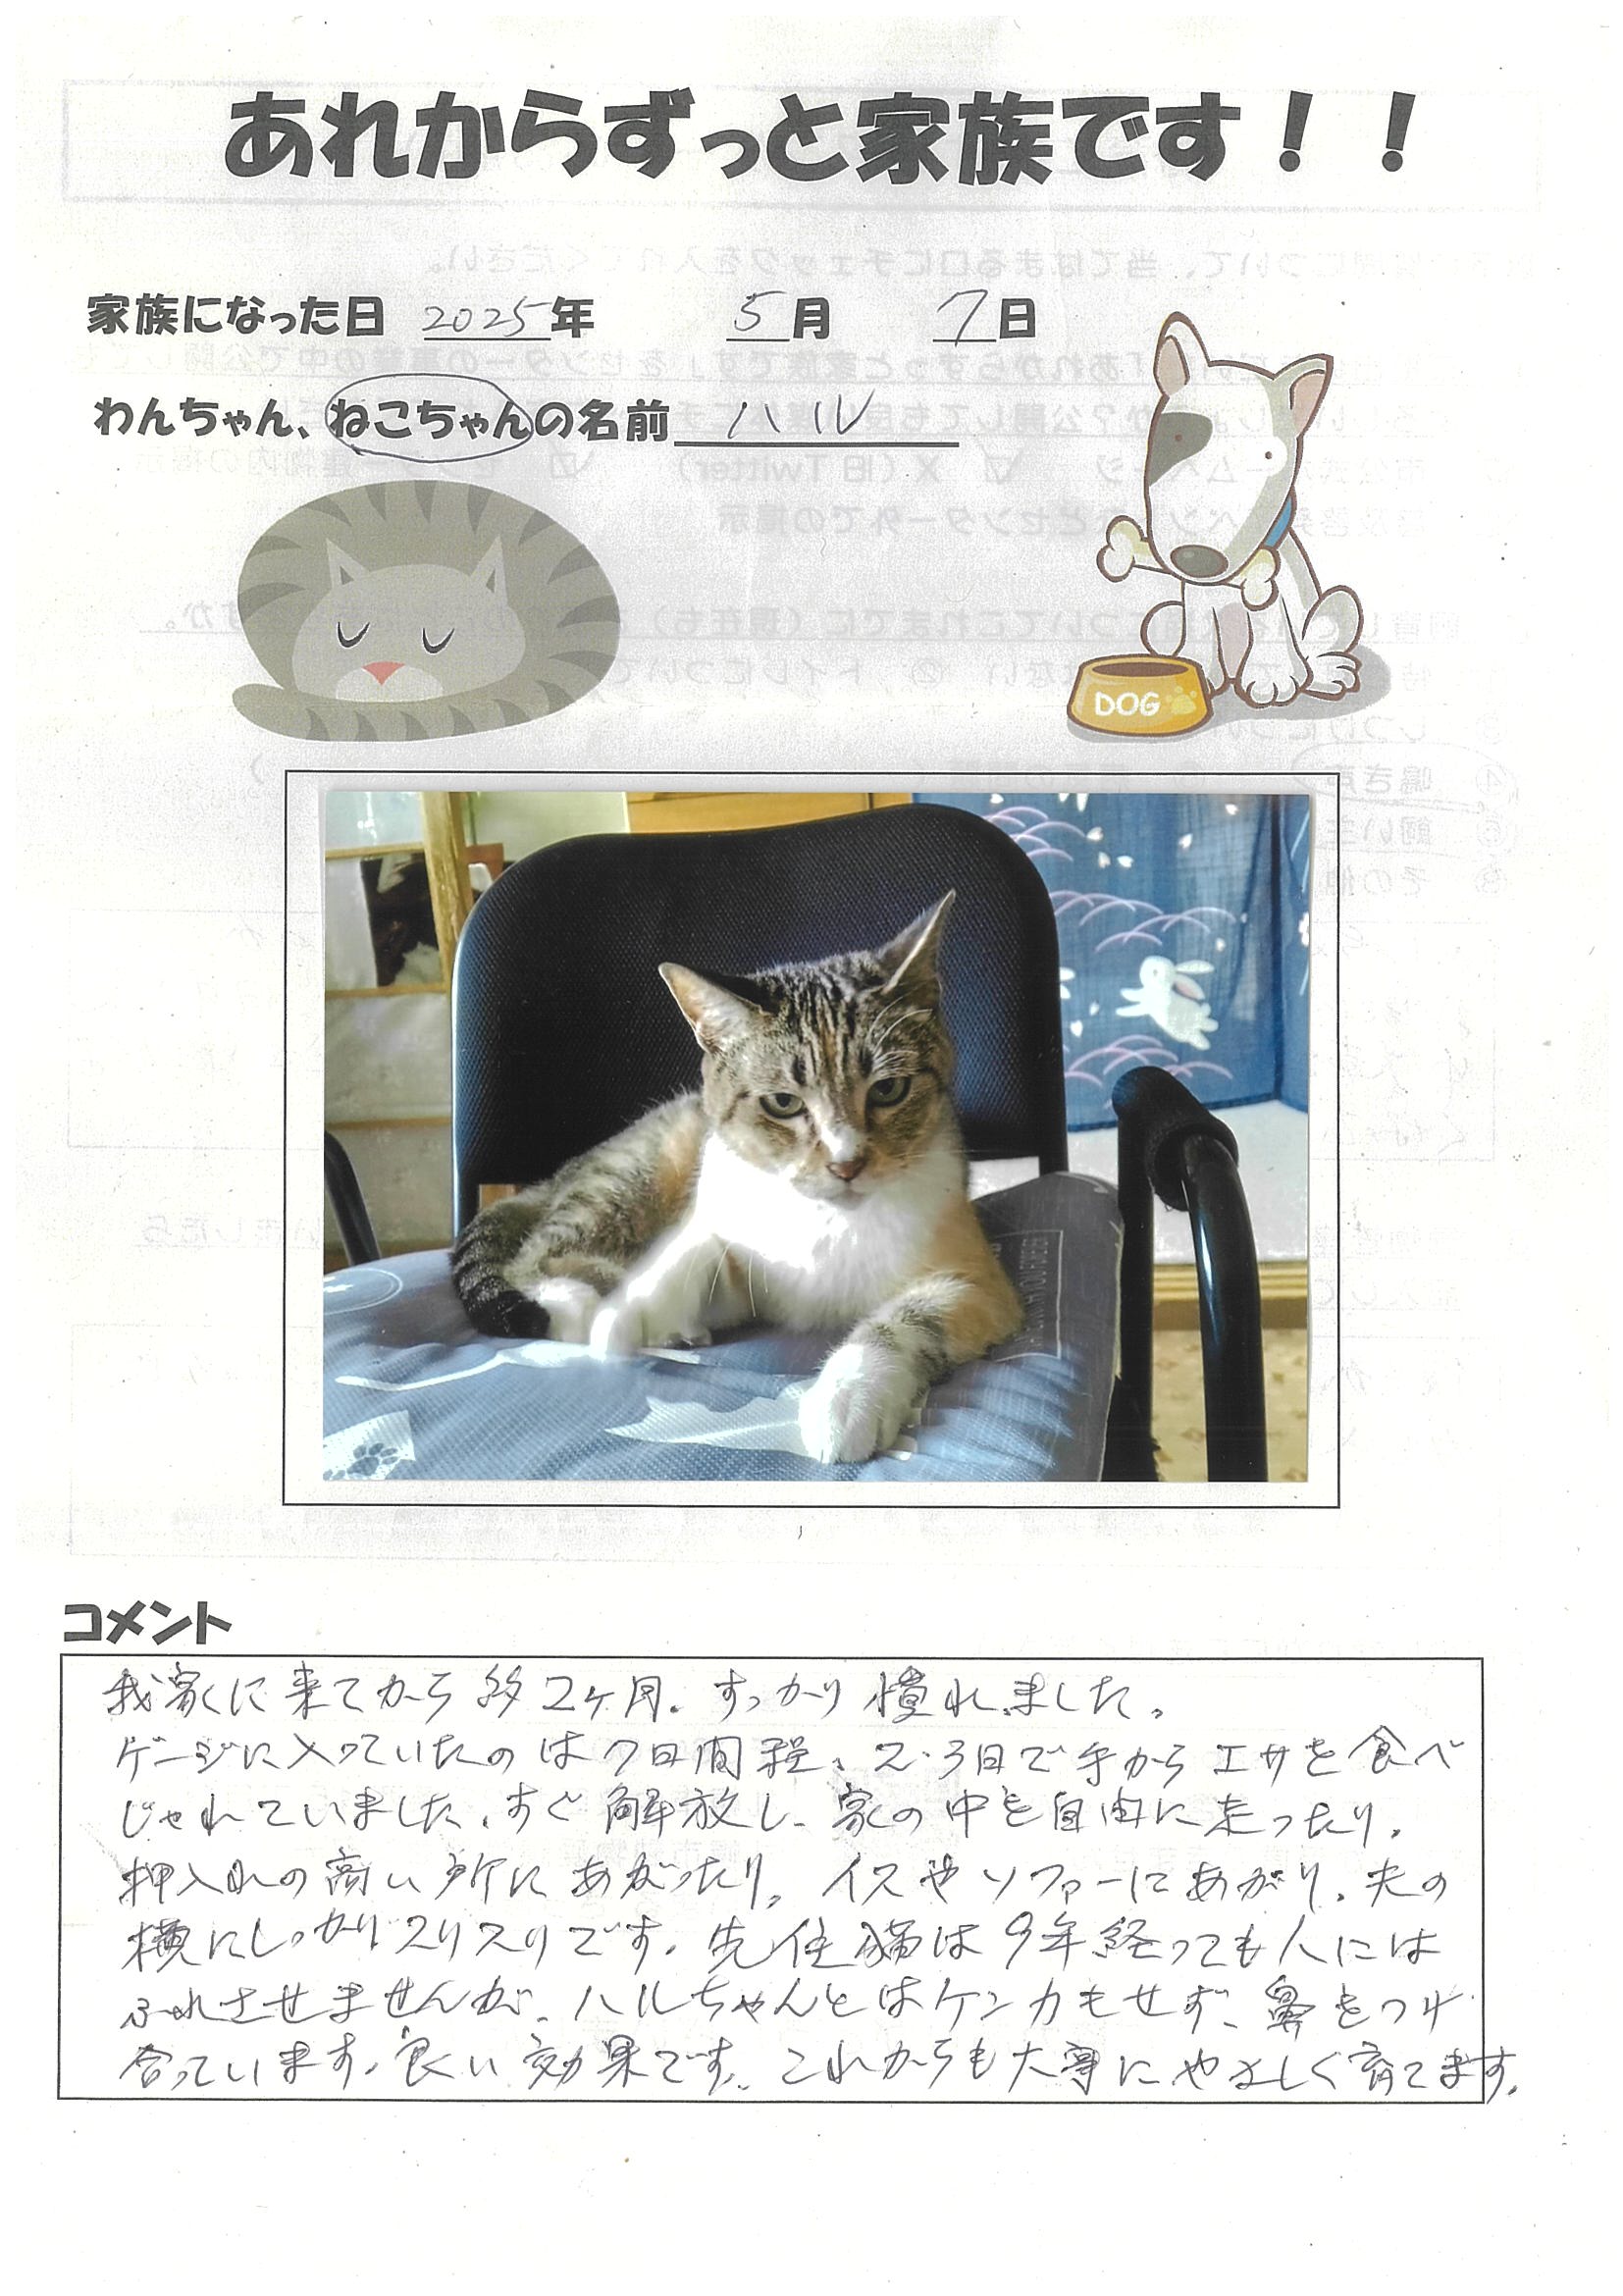 あれからずっと家族です！！
家族になった日 2025年 5月 7日
わんちゃん、ねこちゃんの名前 ハル
DOG
コメント
我家に来てから約2ヶ月。すっかり慣れました。
ゲージに入っていたのは7日間程、2.3日で手からエサを食べ
じゃれていました。すぐ解放し、家の中を自由に走ったり、
押入れの高い所にあがったり、イスやソファーにあがり、夫の
横にしっかりスリスリです。先住猫は9年経っても人には
ふれさせませんが、ハルちゃんとはケンカもせず、鼻をつけ
合っています。良い効果です。これからも大事にやさしく育てます。